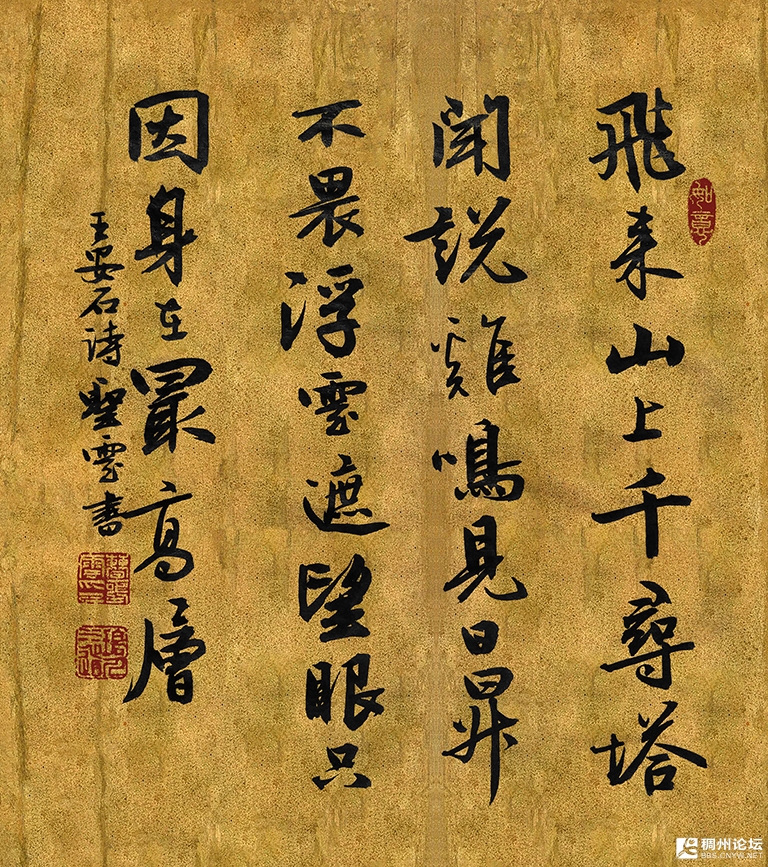 飛来山上千尋塔
聞說雞鳴見日昇
不畏浮雲遮望眼只
因身在最高層
王安石诗聖雲書
如意
稠州论坛
BBS.CNYW.NET